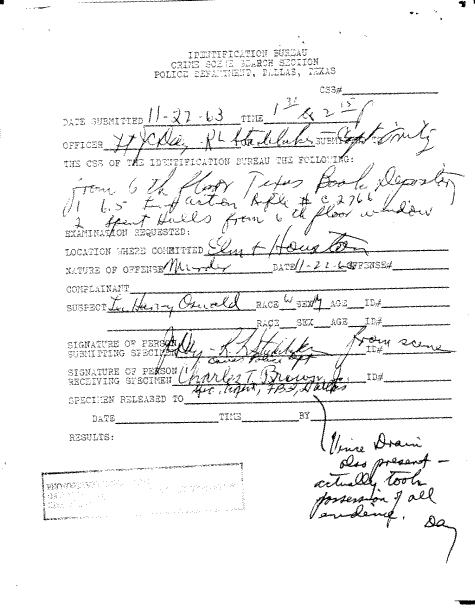 IDENTIFICATION BUREAU
CRIME SCENE SEARCH SECTION
POLICE DEPARTMENT, DALLAS, TEXAS
CSS#
DATE SUBMITTED 11-22-63 TIME 1 30 & 2 15 P
OFFICER J C Day - R L Studebaker
THE CSS OF THE IDENTIFICATION BUREAU THE FOLLOWING:
from 6 th floor Texas Book Depository
1 6.5 Rifle # C 2766
2 Spent Hulls from 6 th floor window
EXAMINATION REQUESTED:
LOCATION WHERE COMMITTED Elm & Houston
NATURE OF OFFENSE Murder DATE 11-22-63 OFFENSE#
COMPLAINANT
SUSPECT Lee Harvey Oswald RACE W SEX M AGE ID#
RACE SEX AGE ID#
from scene
SIGNATURE OF PERSON Day - R L Studebaker
SUBMITTING SPECIMEN Dallas Police Dpt ID#
SIGNATURE OF PERSON Charles T Brown Jr
RECEIVING SPECIMEN Spec. Agent, FBI, Dallas ID#
SPECIMEN RELEASED TO
DATE TIME BY
RESULTS:
Vince Drain
also present -
actually took
possession of all
evidence.
Day